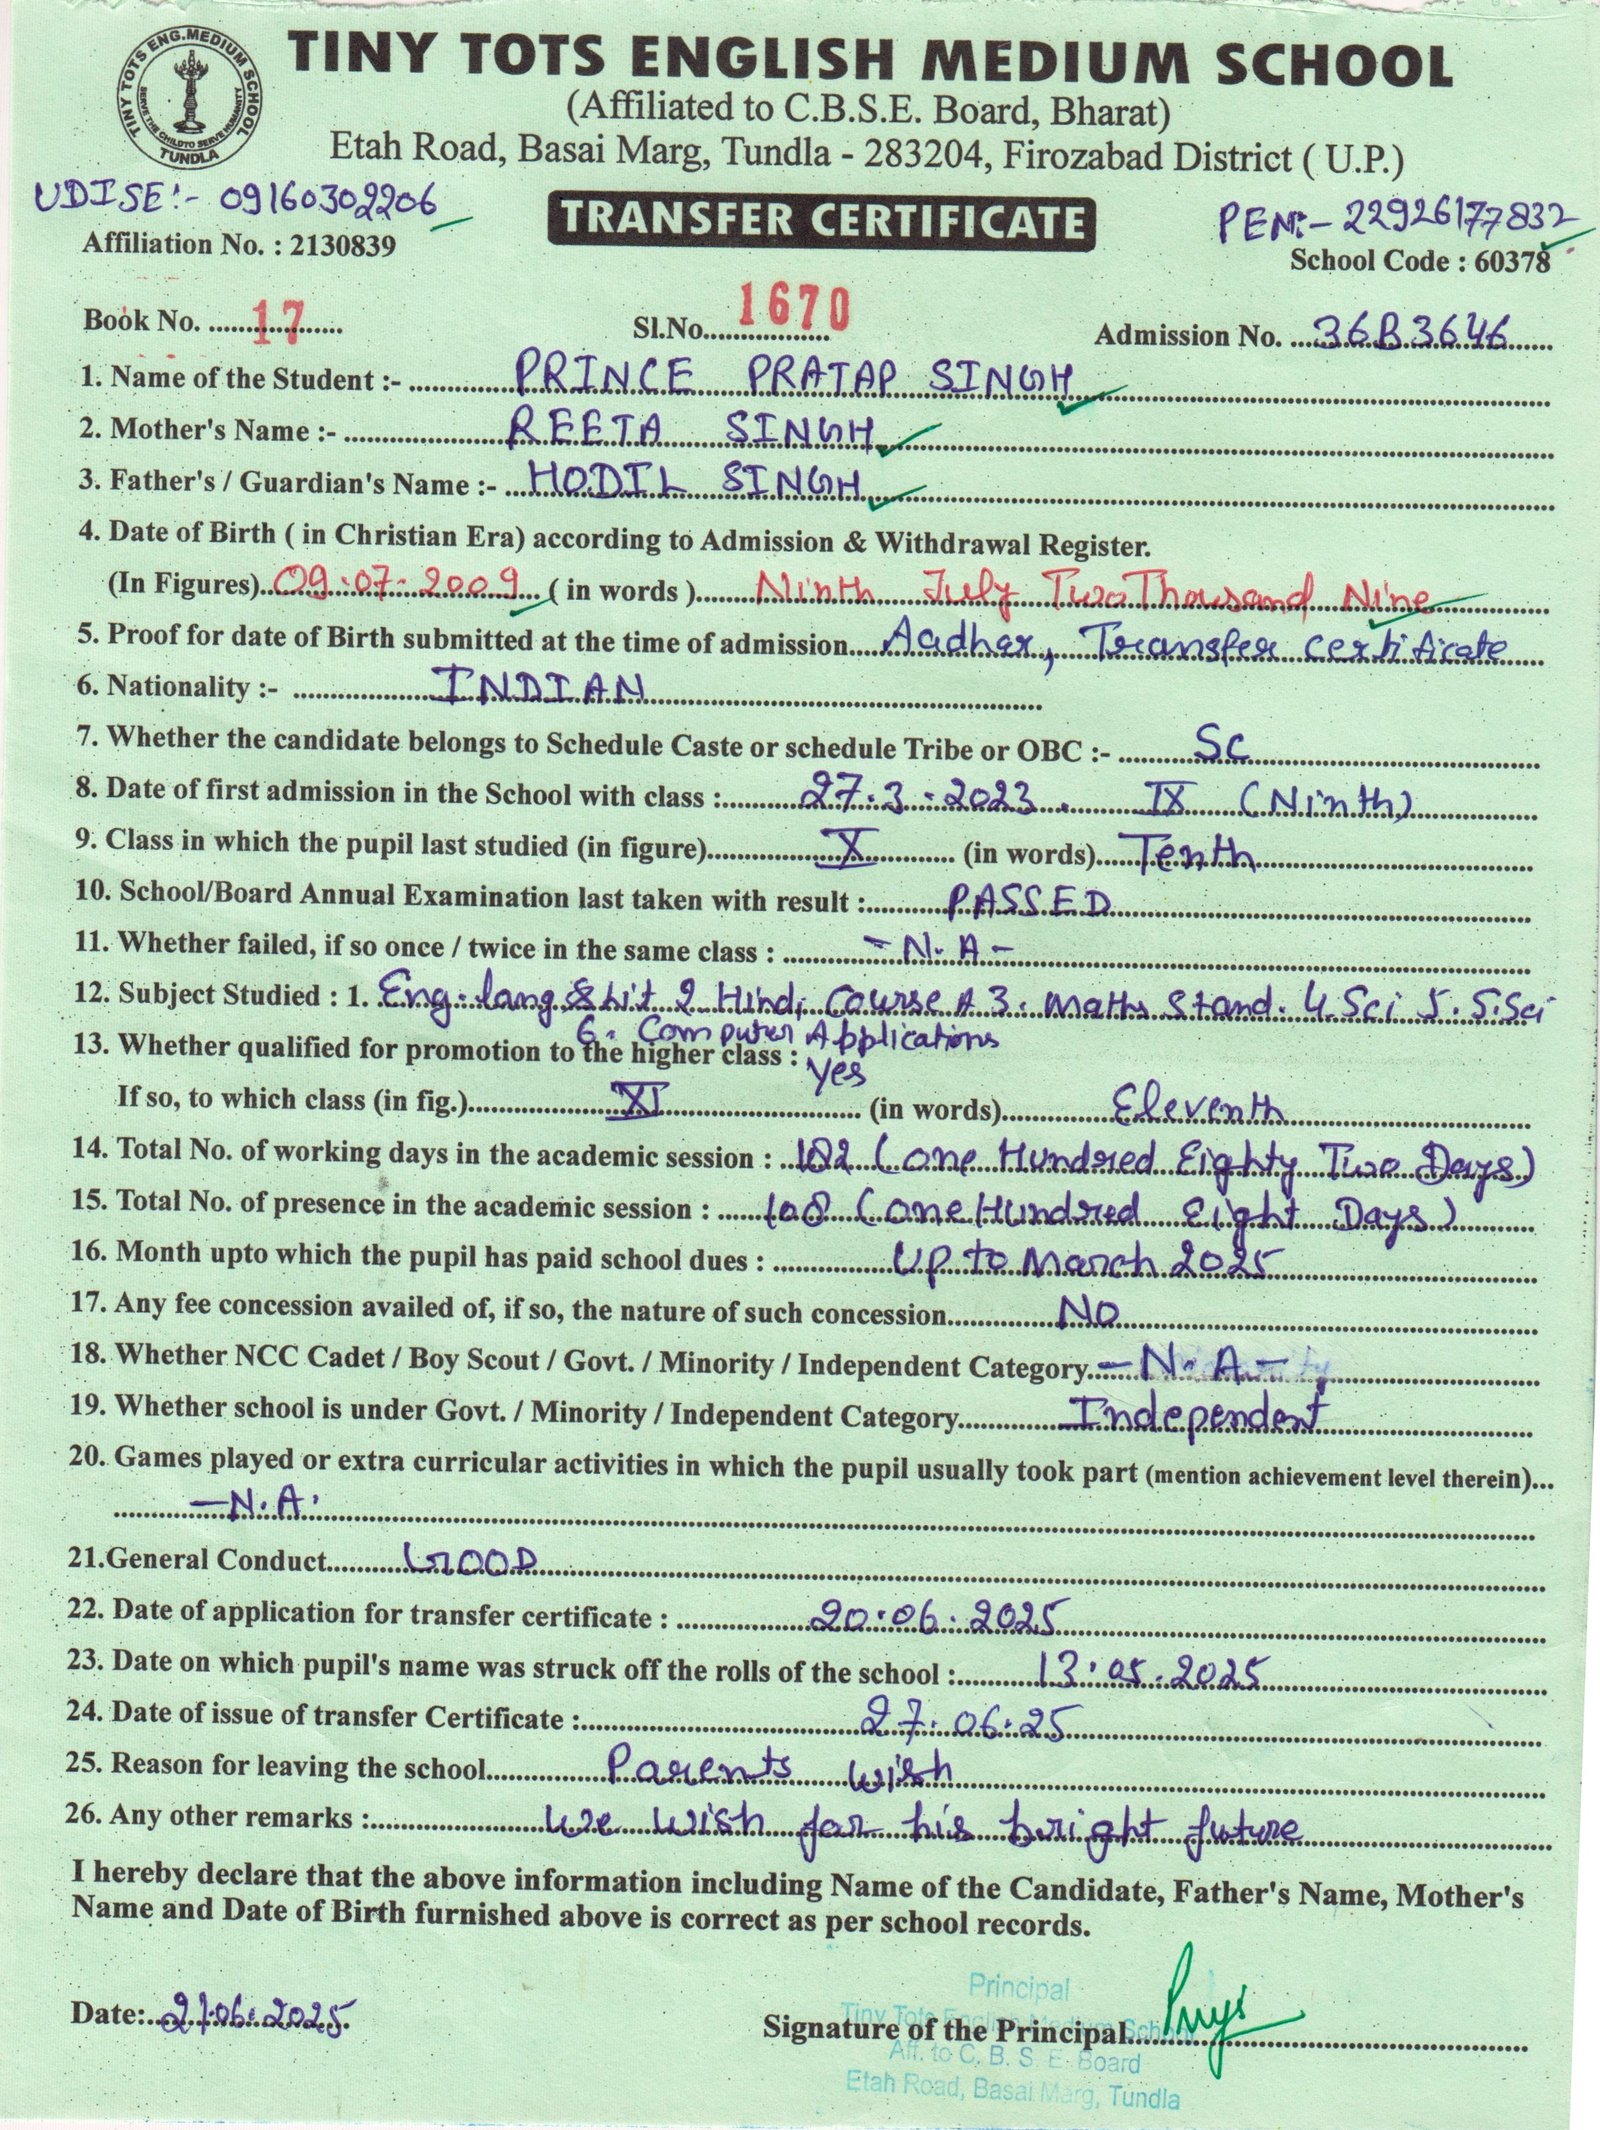 TINY TOTS ENG.MEDIUM SCHOOL
SERVE THE CHILD TO SERVE HUMANITY
TUNDLA
TINY TOTS ENGLISH MEDIUM SCHOOL
(Affiliated to C.B.S.E. Board, Bharat)
Etah Road, Basai Marg, Tundla - 283204, Firozabad District ( U.P.)
UDISE:- 09160302206
TRANSFER CERTIFICATE
PEN:- 22926177832
Affiliation No. : 2130839
School Code : 60378
Book No. 17 Sl.No. 1670 Admission No. 36B3646
1. Name of the Student :- PRINCE PRATAP SINGH
2. Mother's Name :- REETA SINGH
3. Father's / Guardian's Name :- HODIL SINGH
4. Date of Birth ( in Christian Era) according to Admission & Withdrawal Register.
(In Figures) 09.07.2009 ( in words ) Ninth July Two Thousand Nine
5. Proof for date of Birth submitted at the time of admission Aadhar, Transfer certificate
6. Nationality :- INDIAN
7. Whether the candidate belongs to Schedule Caste or schedule Tribe or OBC :- SC
8. Date of first admission in the School with class : 27.3.2023. IX (Ninth)
9. Class in which the pupil last studied (in figure) X (in words) Tenth
10. School/Board Annual Examination last taken with result : PASSED
11. Whether failed, if so once / twice in the same class : -N.A-
12. Subject Studied : 1. Eng. lang & Lit 2 Hindi Course A 3. Maths Stand. 4. Sci 5. S.Sci
6. Computer Applications
13. Whether qualified for promotion to the higher class : Yes
If so, to which class (in fig.) XI (in words) Eleventh
14. Total No. of working days in the academic session : 182 (One Hundred Eighty Two Days)
15. Total No. of presence in the academic session : 108 (One Hundred Eight Days)
16. Month upto which the pupil has paid school dues : Up to March 2025
17. Any fee concession availed of, if so, the nature of such concession NO
18. Whether NCC Cadet / Boy Scout / Govt. / Minority / Independent Category -N.A-
19. Whether school is under Govt. / Minority / Independent Category Independent
20. Games played or extra curricular activities in which the pupil usually took part (mention achievement level therein)...
-N.A.
21.General Conduct GOOD
22. Date of application for transfer certificate : 20.06.2025
23. Date on which pupil's name was struck off the rolls of the school : 13.05.2025
24. Date of issue of transfer Certificate : 27.06.25
25. Reason for leaving the school Parents wish
26. Any other remarks : We wish for his bright future
I hereby declare that the above information including Name of the Candidate, Father's Name, Mother's
Name and Date of Birth furnished above is correct as per school records.
Principal
Tiny Tots English Medium School
Date: 21.06.2025 Signature of the Principal
Aff. to C. B. S. E. Board
Etah Road, Basai Marg, Tundla